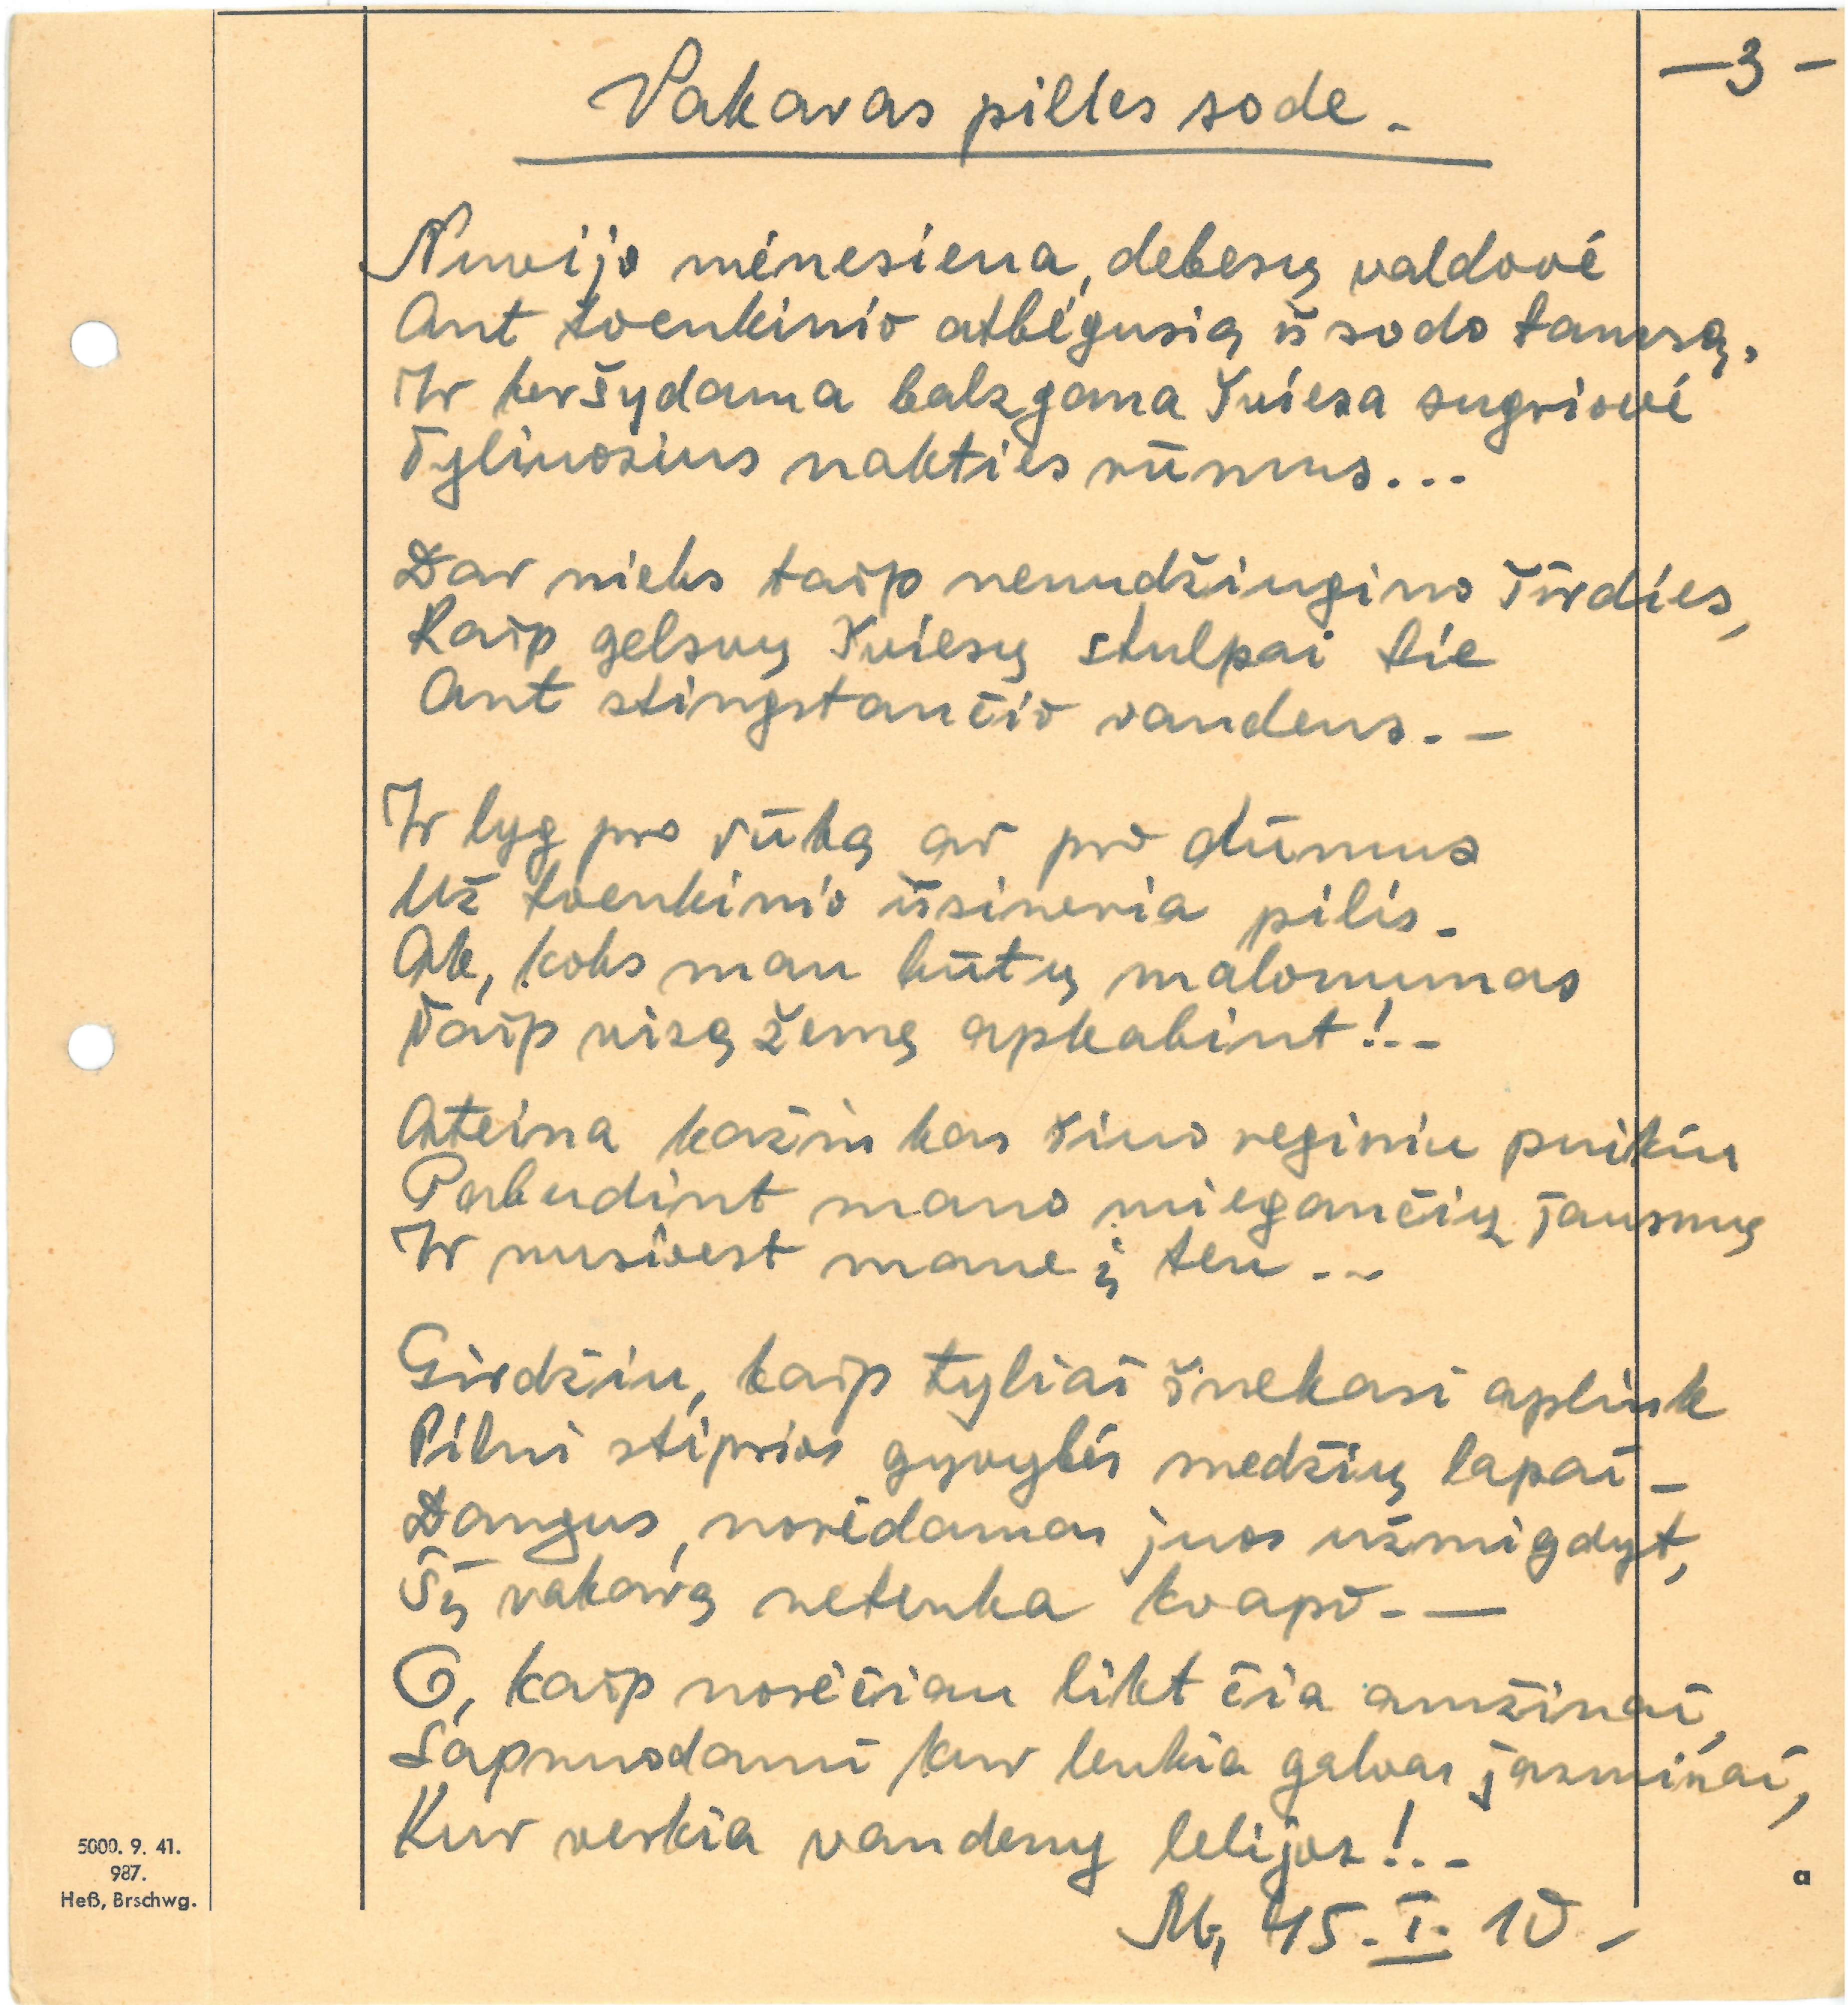 — 3 —
Vakaras pilies sode.
Nuvijo mėnesiena, debesų valdovė
Ant tvenkinio atbėgusią iš sodo tamsą,
Ir keršydama balzgana šviesa sugriovė
Tyliuosius nakties rūmus...
Dar nieks taip nenudžiugino širdies,
Kaip gelsvų šviesų stulpai tie
Ant stingstančio vandens. —
Ir lyg pro rūką ar pro dūmus
Už tvenkinio išsineria pilis.
Ak, koks man būtų malonumas
Taip visą žemę apkabint!..
Ateina kažin kas šiuo reginiu puikiu
Pabudint mano miegančių jausmų
Ir nusivest mane į ten...
Girdžiu, kaip tyliai šnekasi aplink
Pilni stiprios gyvybės medžių lapai —
Dangus, norėdamas juos užmigdyt,
Šį vakarą netenka kvapo. —
O, kaip norėčiau likt čia amžinai,
Sapnuodami kur lenkia galvas jasminai,
Kur verkia vandeny lelijos!..
M, 45. I. 10.
5000. 9. 41.
987.
Heß, Brschwg.
a